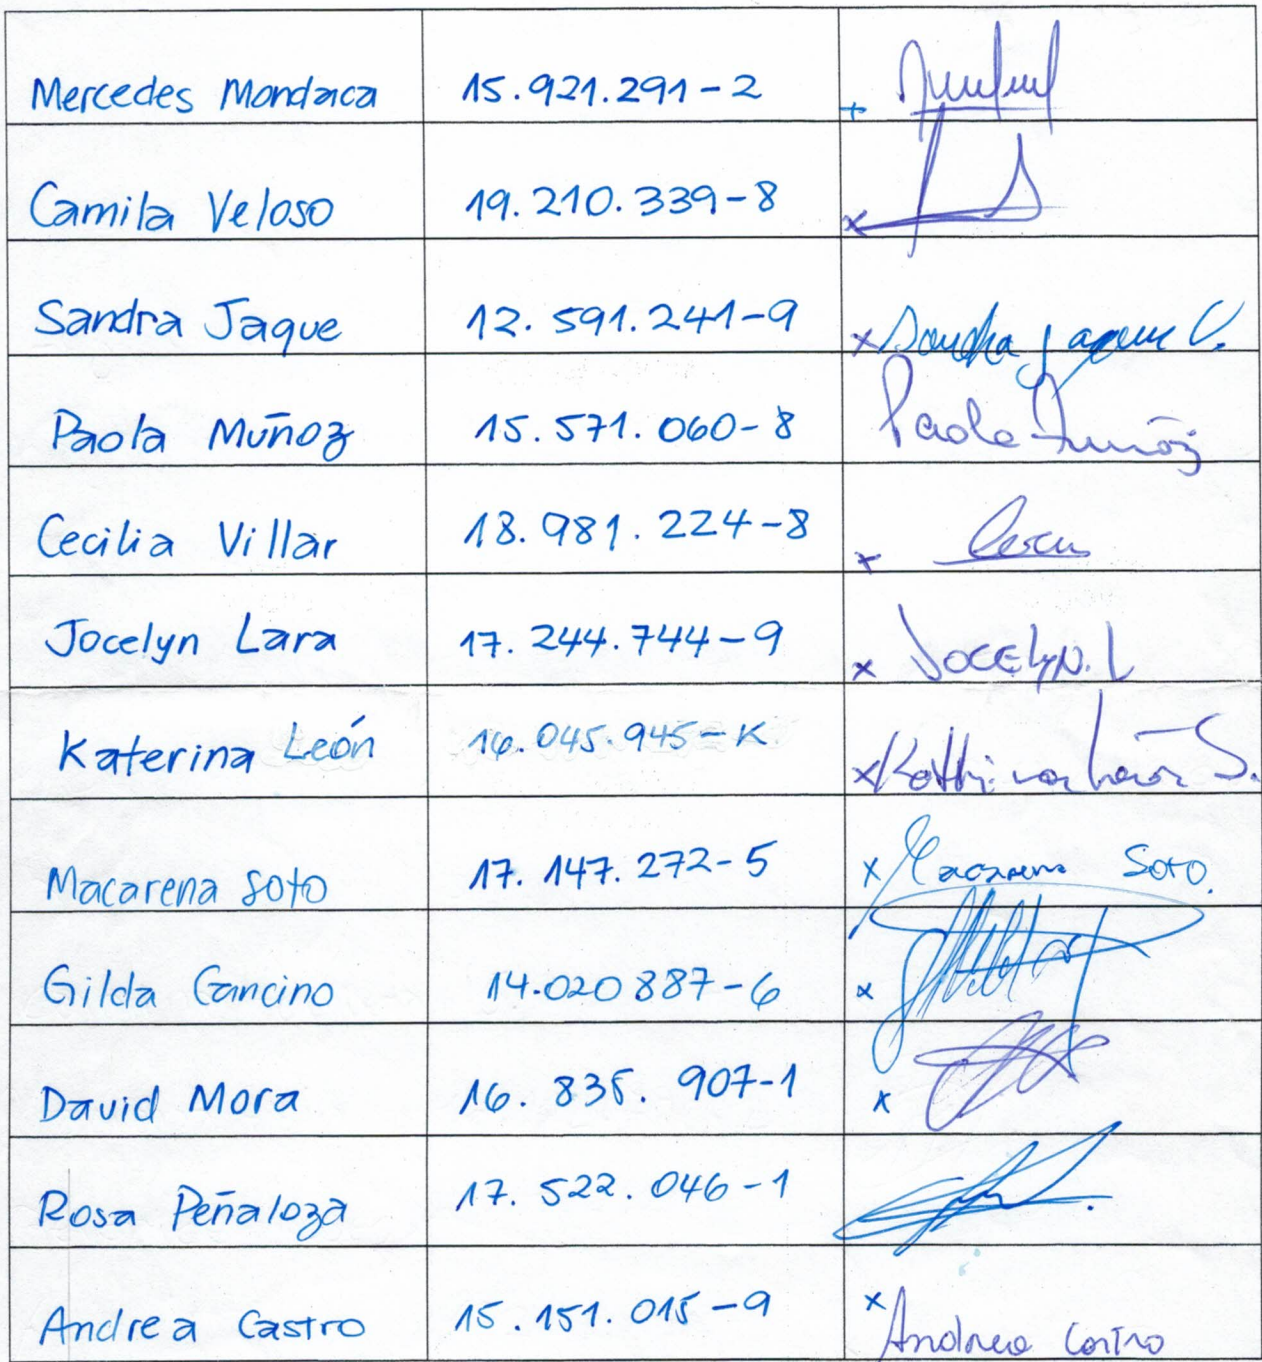 Mercedes Mondaca 15.921.291-2
Camila Veloso 19.210.339-8
Sandra Jaque 12.591.241-9 x Sandra Jaque V.
Paola Muñoz 15.571.060-8 Paola Muñoz
Cecilia Villar 18.981.224-8 x
Jocelyn Lara 17.244.744-9 x JOCELYN. L
Katerina León 16.045.945-K x Katherina León S.
Macarena Soto 17.147.272-5 x Macarena Soto.
Gilda Cancino 14.020 887-6 x
David Mora 16.835.907-1 x
Rosa Peñaloza 17.522.046-1
Andrea Castro 15.151.015-9 x Andrea Castro